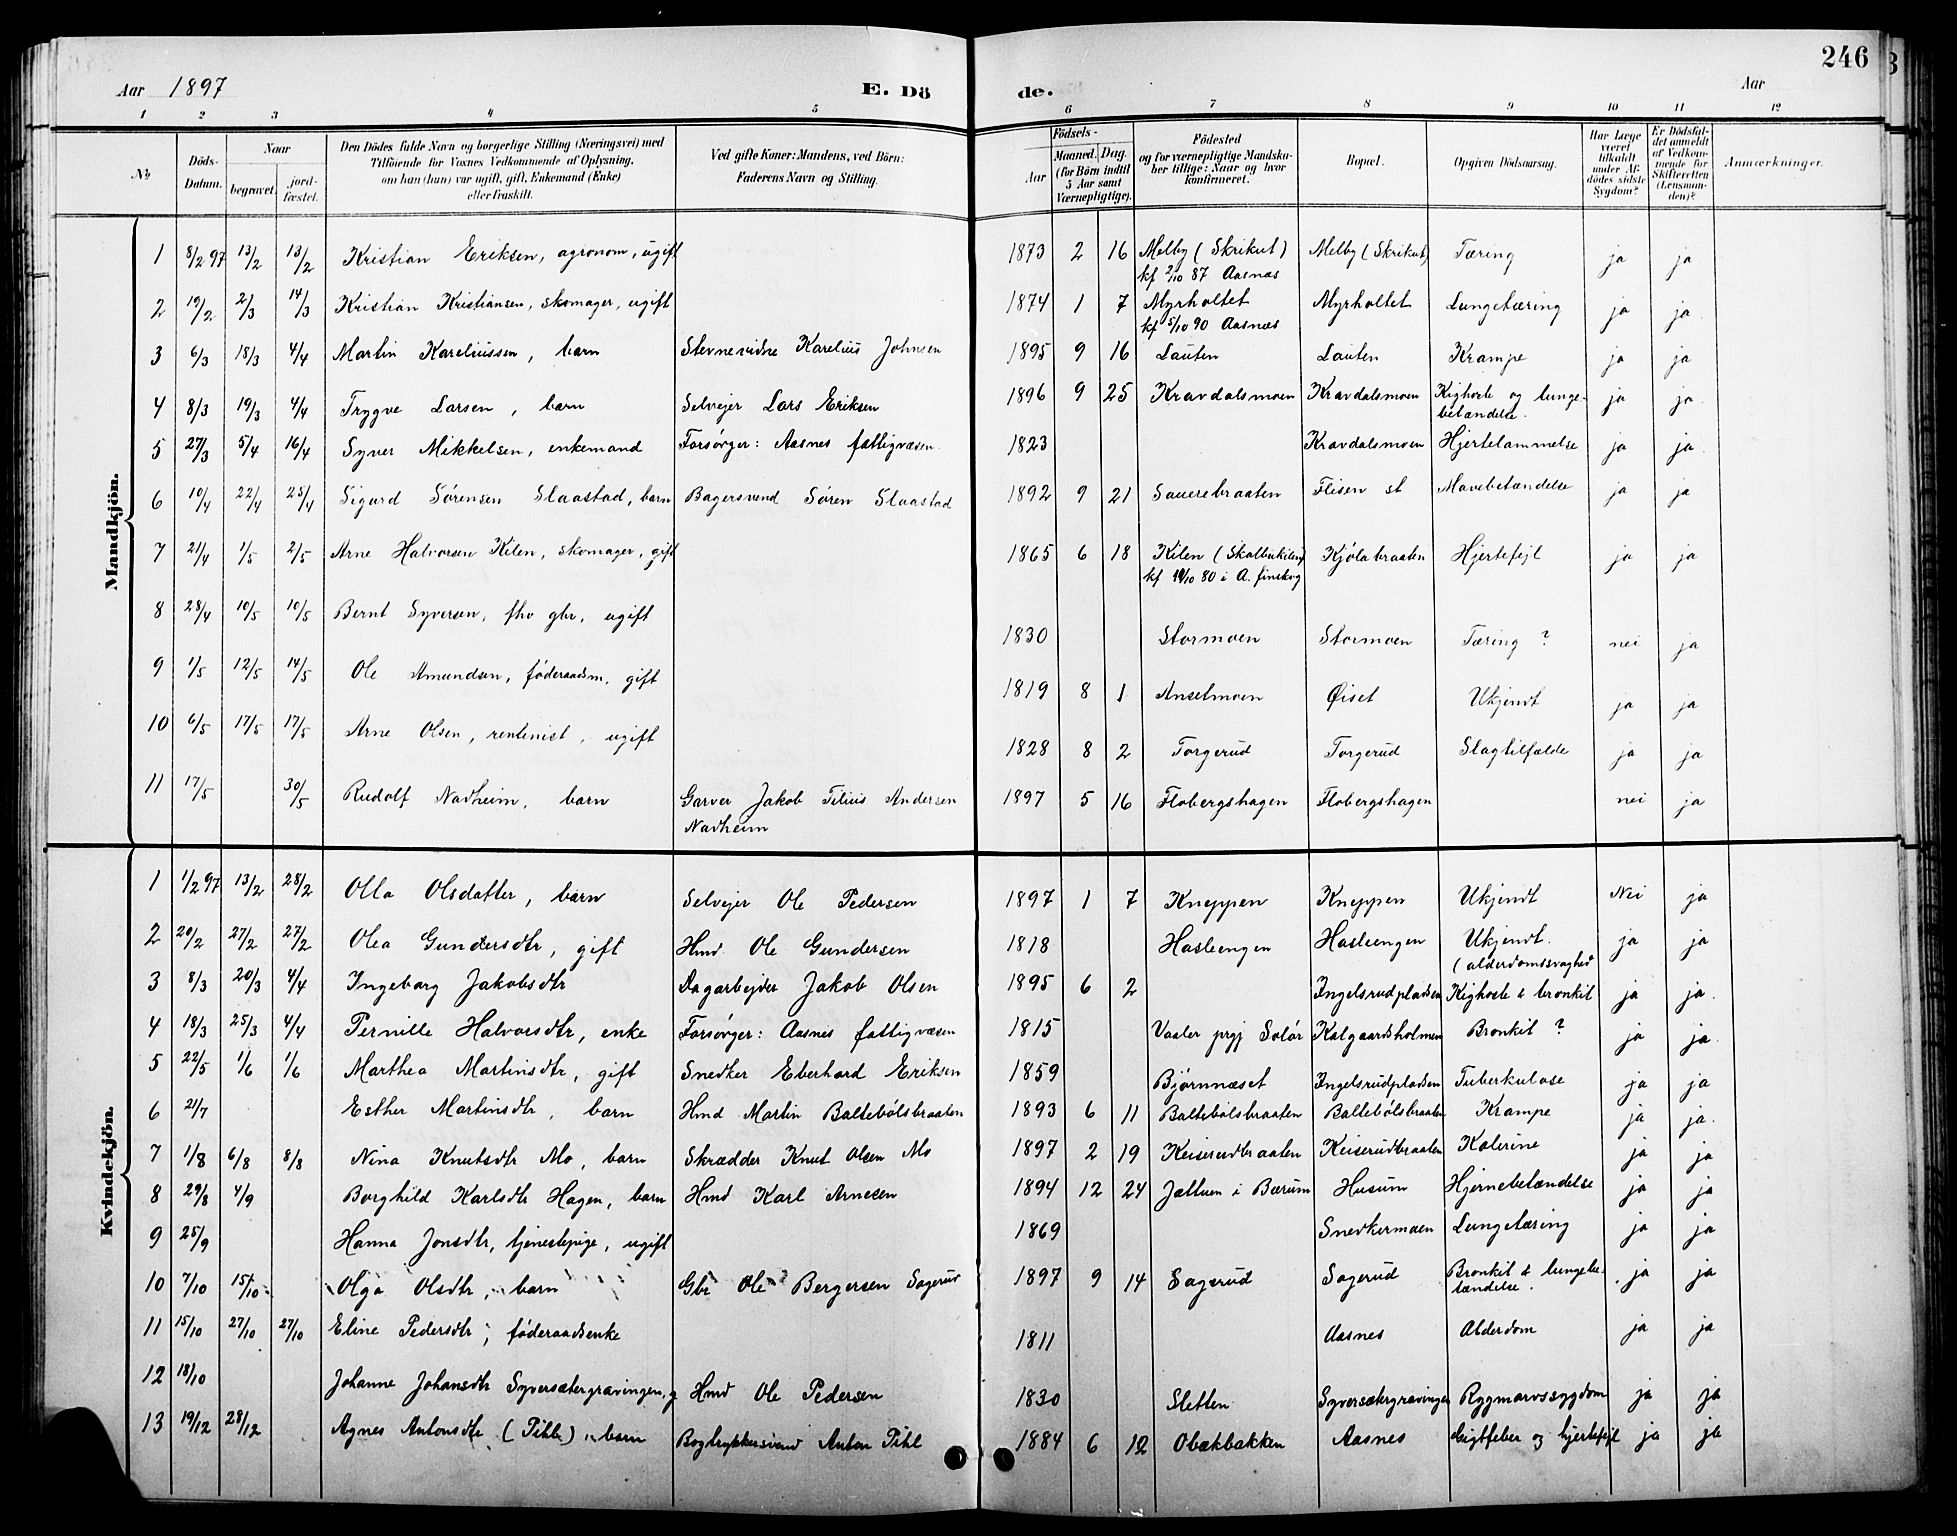 Aar 1897
E. Dö
de.
Aar
246
1 2 3 4 5 6 7 8 9 10 11 12
No
Döds-Datum.
Naar
begravet.
jord-fæstet.
Den Dödes fulde Navn og borgerlige Stilling (Næringsvei) med
Tilföiende for Voxnes Vedkommende af Oplysning,
om han (hun) var ugift, gift, Enkemand (Enke)
eller fraskilt.
Ved gifte Koner: Mandens, ved Börn:
Faderens Navn og Stilling.
Födsels-
Aar
Maaned. Dag.
(for Börn indtil
5 Aar samt
Værnepligtige).
Födested
og for værnepligtige Mandska-
ber tillige: Naar og hvor
konfirmeret.
Bopæl.
Opgiven Dödsaarsag.
Har Læge
været
tilkaldt
under Af-
dödes sidste
Sygdom?
Er Dödsfal-
det anmeldt
af Vedkom-
mende for
Skifteretten
(Lensman-
den)?
Anmærkninger.
Mandkjön.
1 8/2 97 13/2 13/2 Kristian Eriksen, agronom, ugift 1873 2 16 Melby (Skrikut) Melby (Skrikut) Tæring ja ja
kf 2/10 87 Aasnæs
2 19/2 2/3 14/3 Kristian Kristiansen, skomager, ugift 1874 1 7 Myrholtet Myrholtet Lungetæring ja ja
kf 5/10 90 Aasnes
3 6/3 18/3 4/4 Martin Kareliussen, barn Stevnevidne Karelius Johnsen 1895 9 16 Lauten Lauten Krampe ja ja
4 8/3 19/3 4/4 Trygve Larsen, barn Selvejer Lars Eriksen 1896 9 25 Kravdalsmoen Kravdalsmoen Kighoste og lunge- ja ja
betændelse.
5 27/3 5/4 16/4 Syver Mikkelsen, enkemand Forsørger: Aasnes fattigvæsen. 1823 Kravdalsmoen Hjertelammelse ja ja
6 10/4 22/4 25/4 Sigurd Sørensen Slaastad, barn Bagersvend Søren Slaastad 1892 9 21 Sauerebraaten Flisen st Mavebetændelse ja ja
7 21/4 1/5 2/5 Arne Halvorsen Kilen, skomager, gift 1865 6 18 Kilen (Skalbukilen) Kjølabraaten Hjertefejl ja ja
kf 10/10 80 i A. finskog
8 28/4 10/5 10/5 Bernt Syversen, fhv gbr, ugift 1830 Stormoen Stormoen Tæring ? nei ja
9 1/5 12/5 14/5 Ole Amundsen, føderaadsm, gift 1819 8 1 Anselmoen Øiset Ukjendt ja ja
10 6/5 17/5 17/5 Arne Olsen, rentenist, ugift 1828 8 2 Torgerud Torgerud Slagtilfælde ja ja
11 17/5 30/5 Rudolf Nadheim, barn Garver Jakob Tilius Andersen 1897 5 16 Flobergshagen Flobergshagen nei ja
Nadheim
Kvindekjön.
1 1/2 97 13/2 28/2 Olla Olsdatter, barn Selvejer Ole Pedersen 1897 1 7 Kneppen Kneppen Ukjendt Nei ja
2 20/2 27/2 27/2 Olea Gundersdtr, gift Hmd Ole Gundersen 1818 Hasleengen Hasleengen Ukjendt. ja ja
(alderdomssvaghed
3 8/3 20/3 4/4 Ingeborg Jakobsdtr Dagarbejder Jakob Olsen 1895 6 2 Ingelsrudpladsen Kighoste & bronkit ja ja
4 18/3 25/3 4/4 Pernille Halvorsdtr, enke Forsørger: Aasnes fattigvæsen 1815 Vaaler prgj Solør Kalgaardsholmen Bronkit ? ja ja
5 22/5 1/6 1/6 Marthea Martinsdtr, gift Snedker Eberhard Eriksen 1859 Bjørnnæset Ingelsrudpladsen Tuberkulose ja ja
6 21/7 Esther Martinsdtr, barn Hmd Martin Baltebølsbraaten 1893 6 11 Baltebølsbraaten Baltebølsbraaten Krampe ja ja
7 1/8 6/8 8/8 Nina Knutsdtr Mo, barn Skrædder Knut Olsen Mo 1897 2 19 Keiserudbraaten Keiserudbraaten Kolerine ja ja
8 29/8 4/9 Borghild Karlsdtr Hagen, barn Hmd Karl Arnesen 1894 12 24 Jættuen i Bærum Husum Hjernebetændelse ja ja
9 25/9 Hanna Jonsdtr, tjenestepige, ugift 1869 Snedkermoen Lungetæring ja ja
10 7/10 15/10 Olga Olsdtr, barn Gbr Ole Bergersen Sagerud 1897 9 14 Sagerud Sagerud Bronkit & lungebe- ja ja
tændelse.
11 15/10 27/10 27/10 Eline Pedersdtr, føderaadsenke 1811 Aasnes Alderdom ja ja
12 18/10 Johanne Johansdtr Syversætergravingen, g Hmd Ole Pedersen 1830 Sletten Syversætergravingen Rygmarvssygdom ja ja
13 19/12 28/12 Agnes Antonsdtr (Pihl), barn Bogtrykkersvend Anton Pihl 1884 6 12 Obækbakken Aasnes Gigtfeber og hjertefejl ja ja